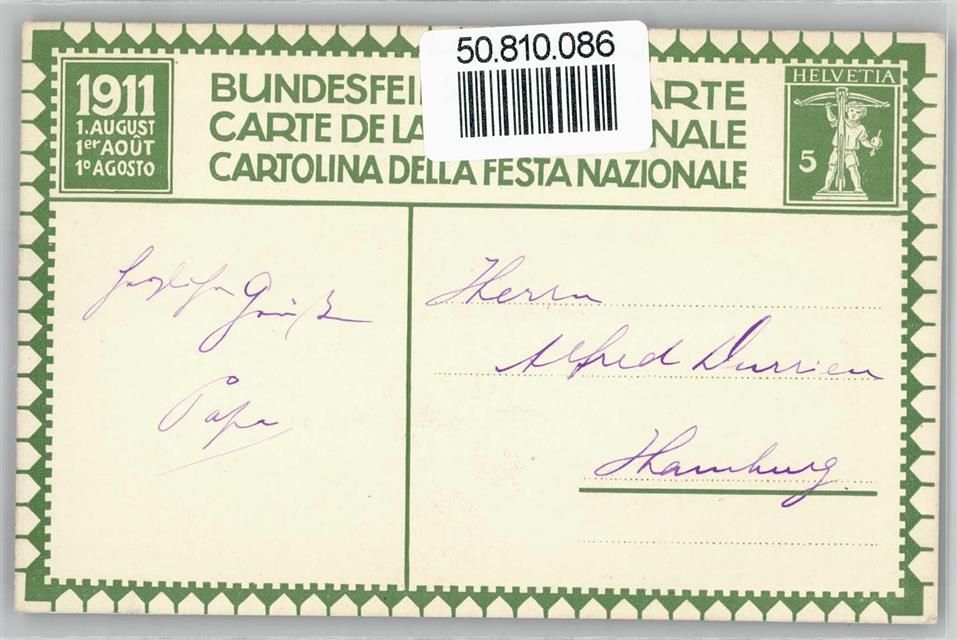 50.810.086
1911
1. AUGUST
1er AOÛT
1º AGOSTO
BUNDESFEI ARTE
CARTE DE LA NALE
CARTOLINA DELLA FESTA NAZIONALE
HELVETIA
5
Herzliche Grüße
Papa
Herrn
Alfred Durrieu
Hamburg.